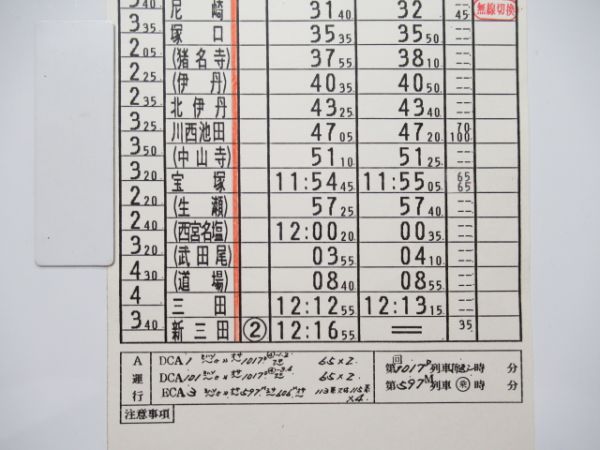 3 40 尼崎 31 40 32 45 無線切換
3 35 塚口 35 35 35 50 --
2 05 (猪名寺) 37 55 38 10 --
2 25 (伊丹) 40 35 40 50 --
2 35 北伊丹 43 25 43 40 --
3 25 川西池田 47 05 47 20 70 100
3 50 (中山寺) 51 10 51 25 --
3 20 宝塚 11:54 45 11:55 05 65 65
2 20 (生瀬) 57 25 57 40 --
2 40 (西宮名塩) 12:00 20 00 35 --
3 20 (武田尾) 03 55 04 10 --
4 30 (道場) 08 40 08 55 --
4 三田 12:12 55 12:13 15 --
3 40 新三田 ② 12:16 55 = 35
A運行
DCA1 65×2
DCA101 65×2
ECA3 ×4
回
第1017D列車 時 分
第597M列車 乗 時 分
注意事項